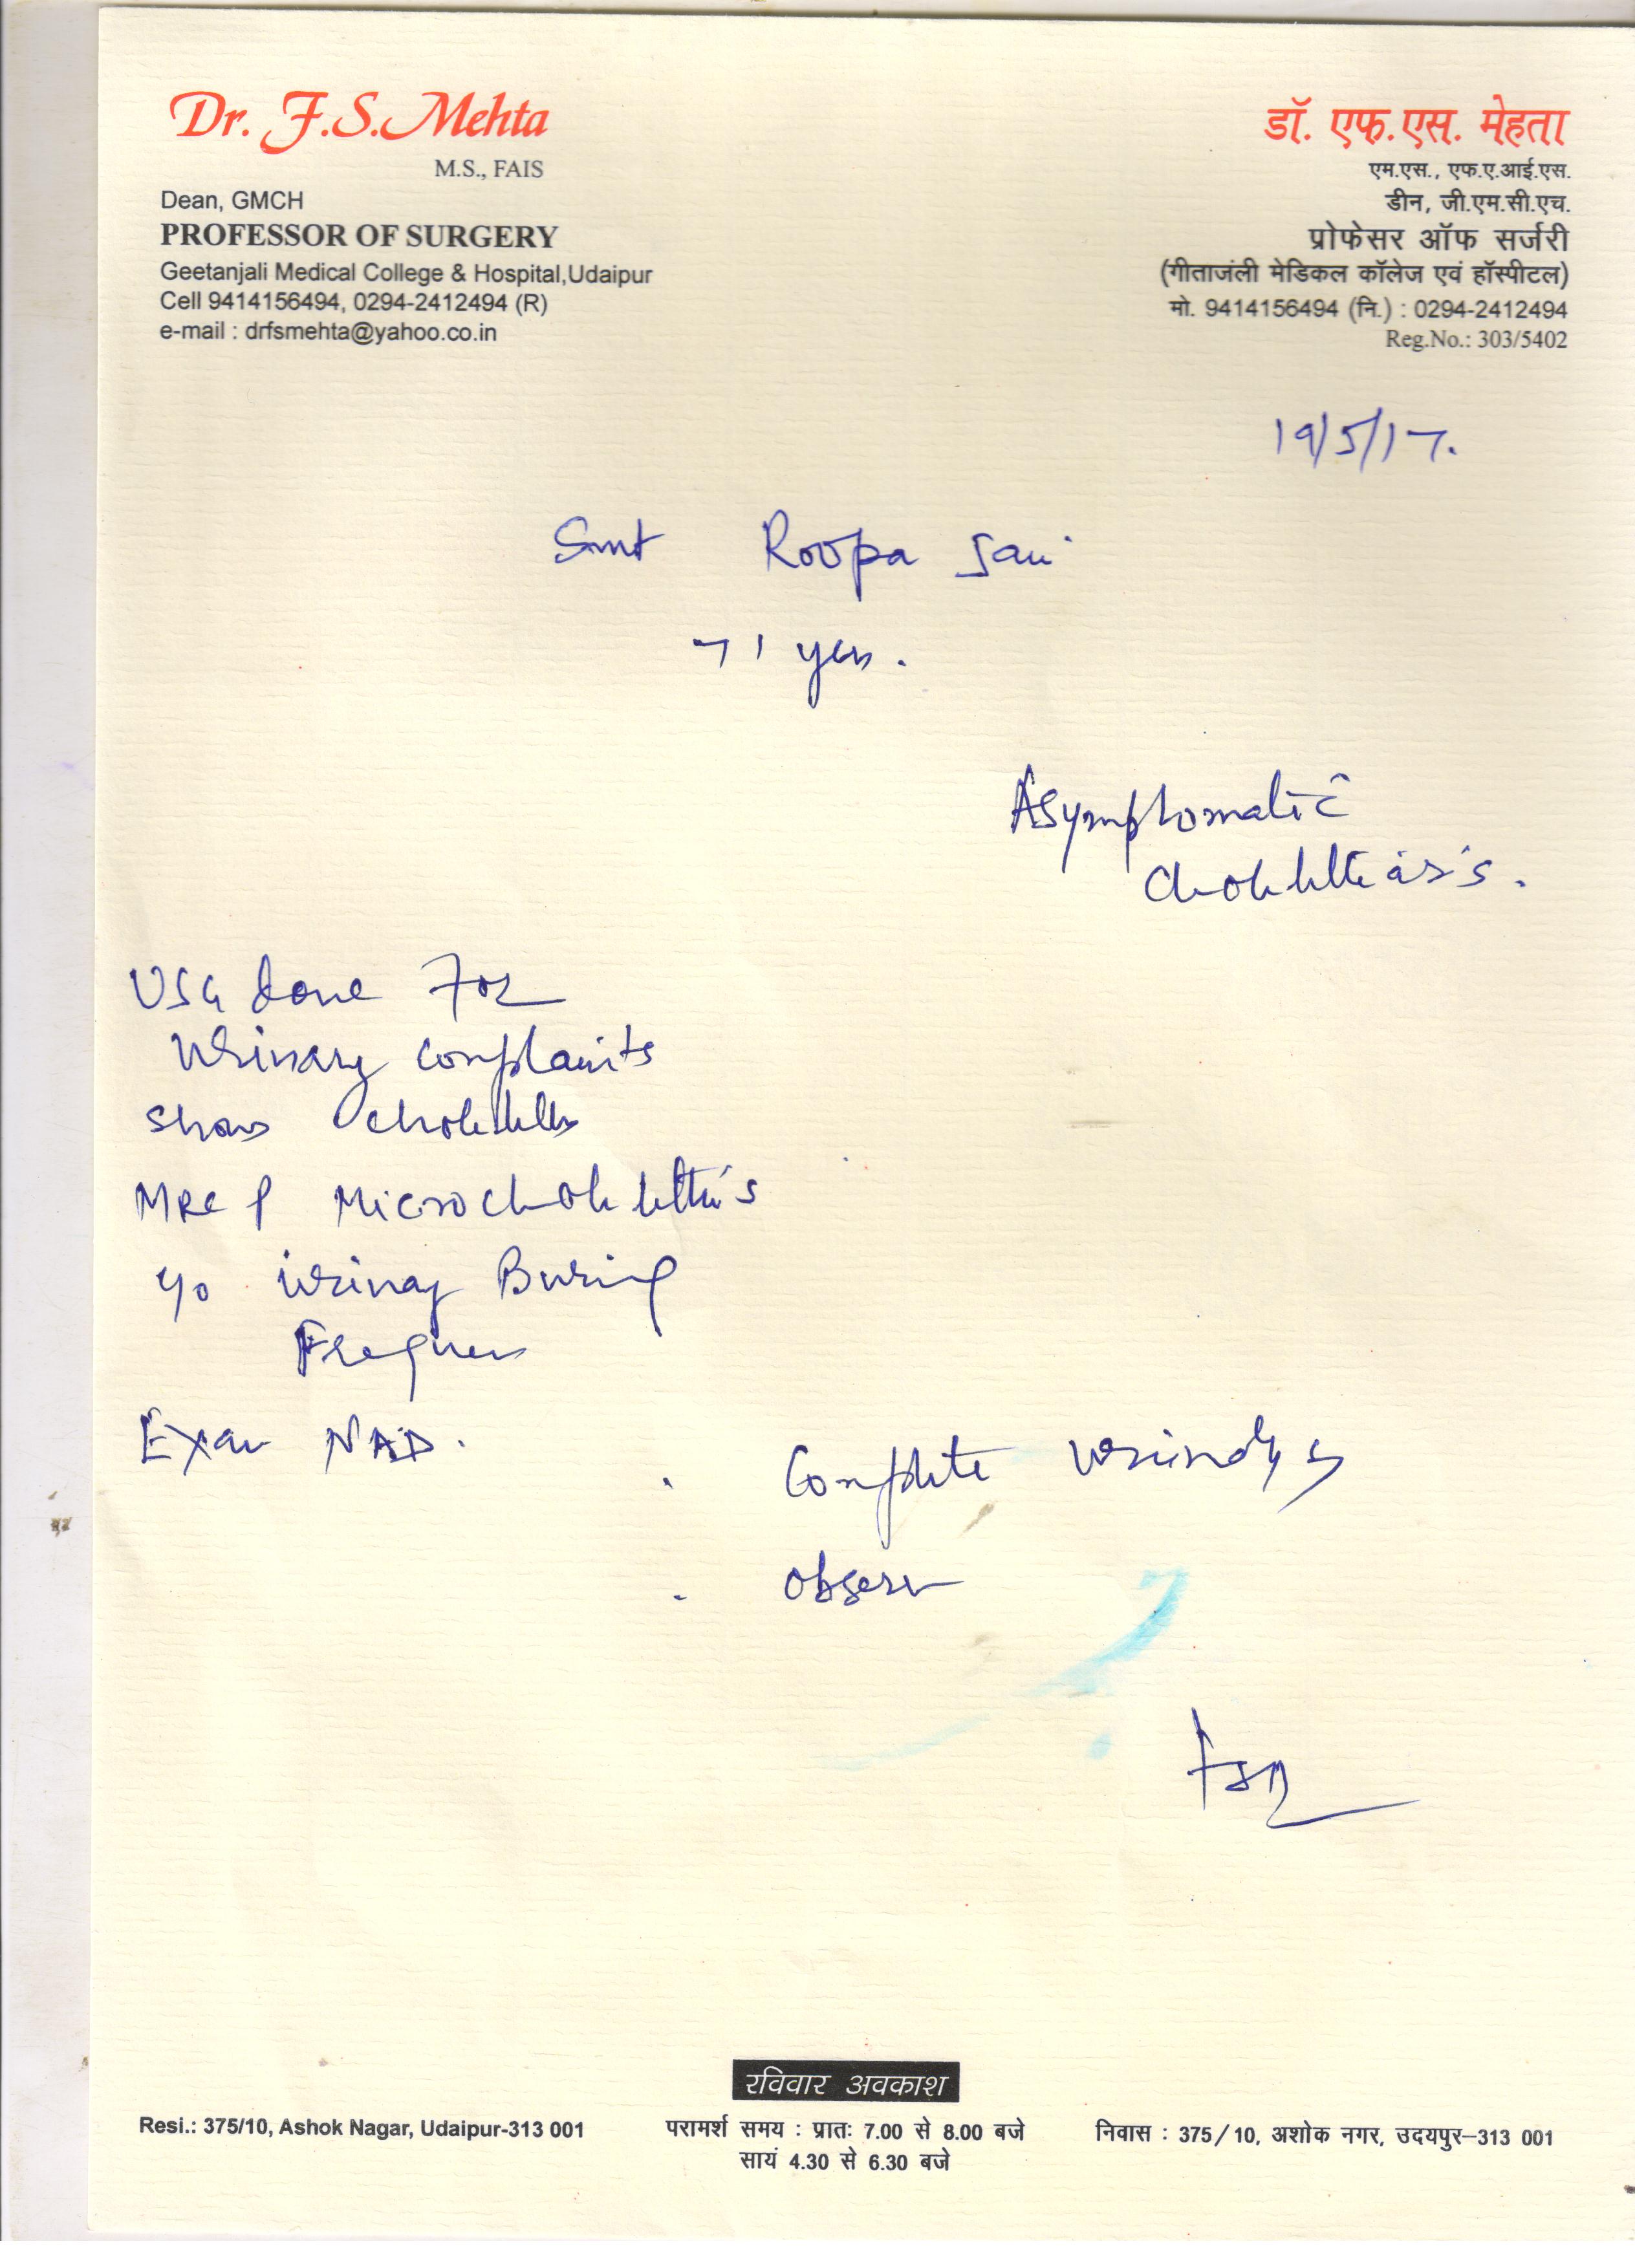 Dr. F.S. Mehta
M.S., FAIS
Dean, GMCH
PROFESSOR OF SURGERY
Geetanjali Medical College & Hospital,Udaipur
Cell 9414156494, 0294-2412494 (R)
e-mail : drfsmehta@yahoo.co.in
डॉ. एफ.एस. मेहता
एम.एस., एफ.ए.आई.एस.
डीन, जी.एम.सी.एच.
प्रोफेसर ऑफ सर्जरी
(गीताजंली मेडिकल कॉलेज एवं हॉस्पीटल)
मो. 9414156494 (नि.) : 0294-2412494
Reg.No.: 303/5402
19/5/17.
Smt Roopa
71 yrs.
Asymptomatic
Cholelithiasis.
USG done For
Urinary complaints
shows
MRCP Microcholelithiasis
Urinary Burning
Frequency
Exam NAD.
. Complete
. Observe
रविवार अवकाश
Resi.: 375/10, Ashok Nagar, Udaipur-313 001
परामर्श समय : प्रातः 7.00 से 8.00 बजे
सायं 4.30 से 6.30 बजे
निवास : 375/10, अशोक नगर, उदयपुर–313 001